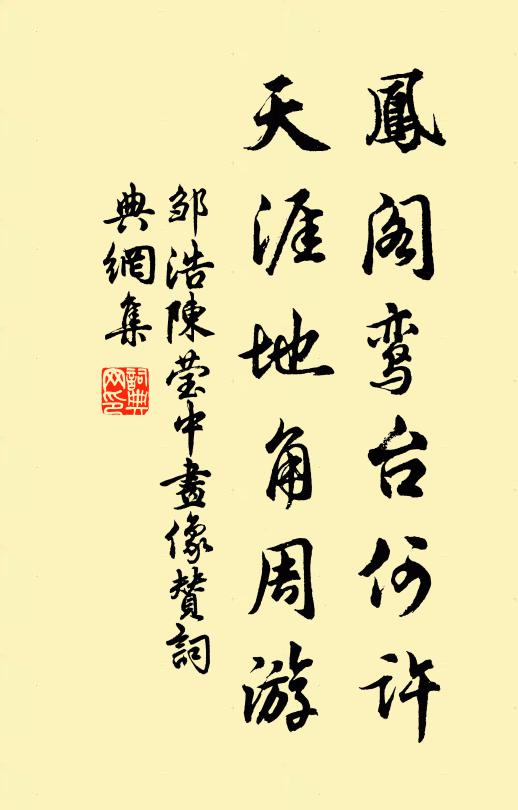 鳳阁鸾台何许
天涯地角周游
邹浩陳莹中畫像赞詞
典網集
詞典网印